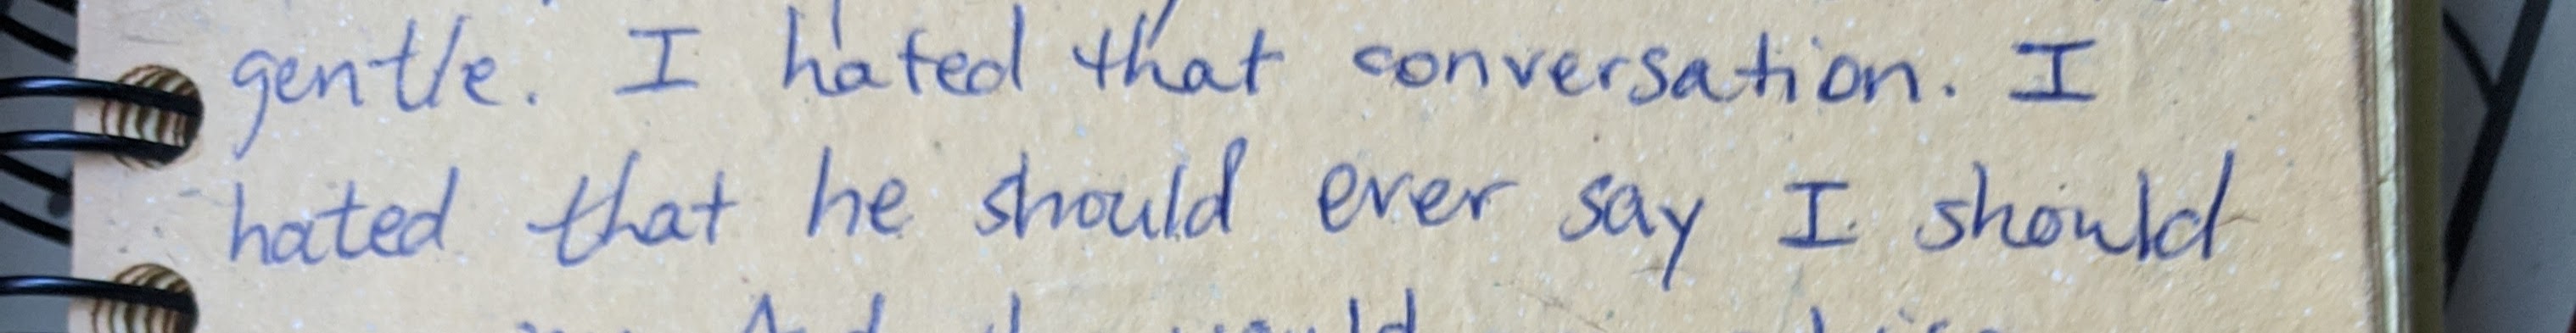 gentle. I hated that conversation. I
hated that he should ever say I should